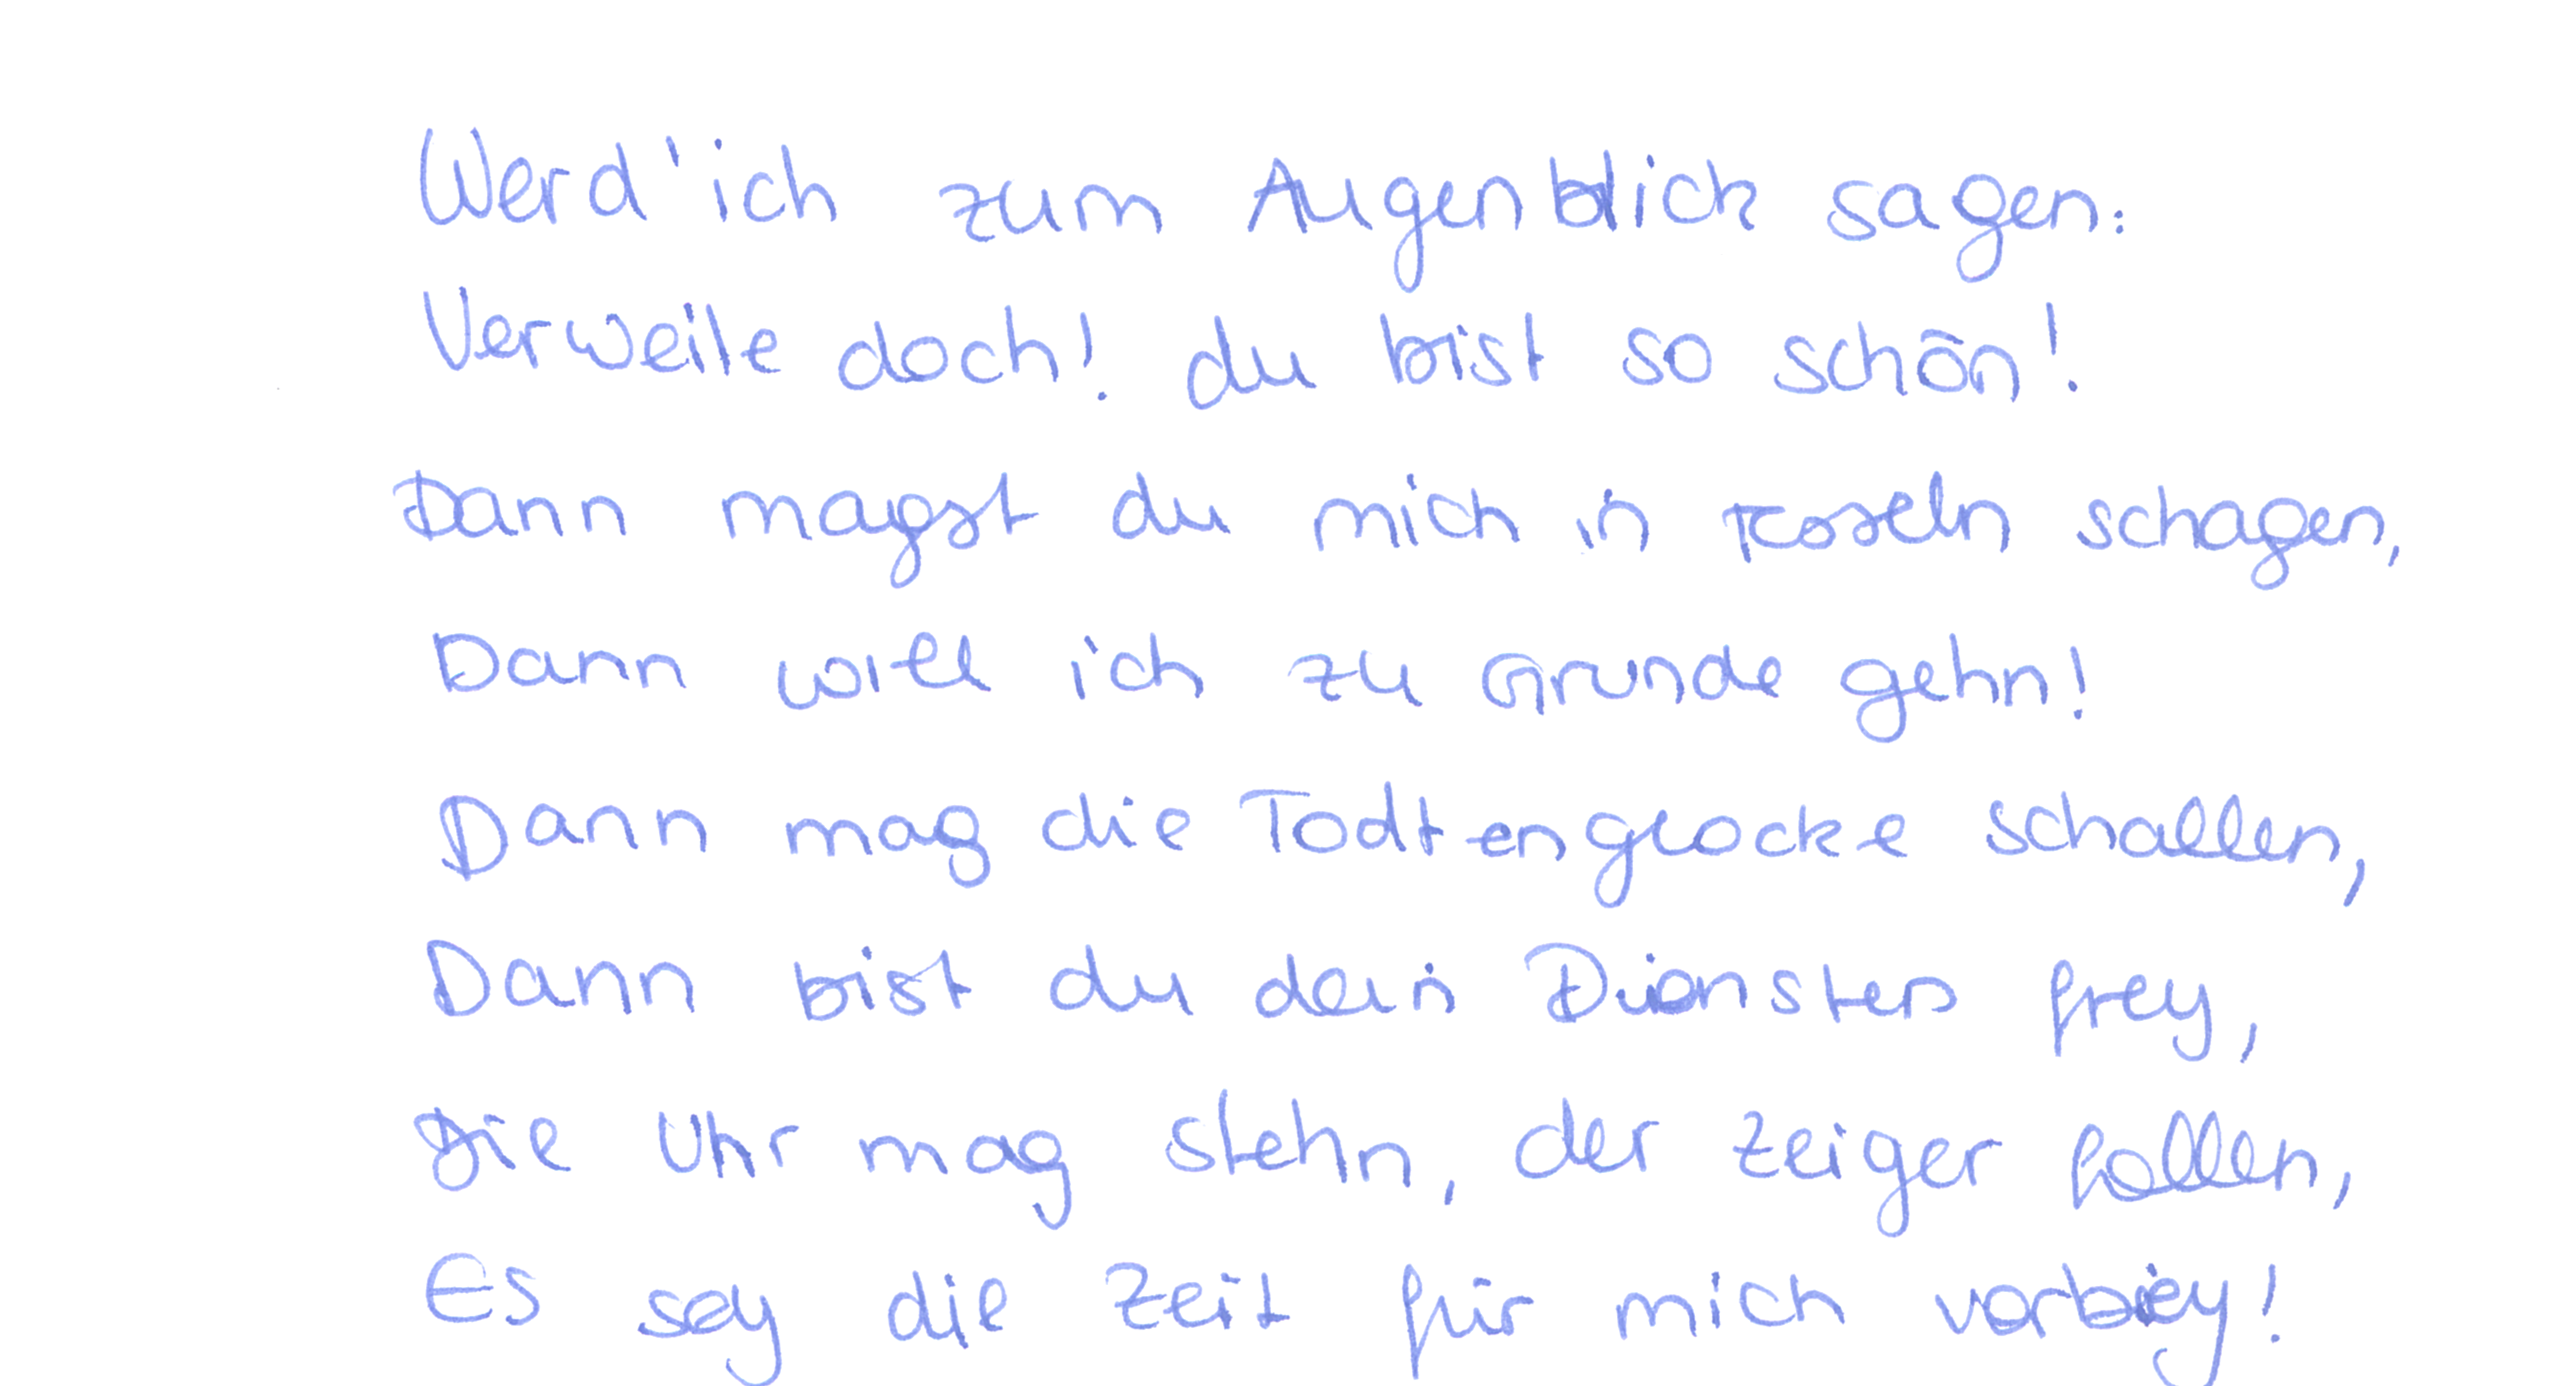 Werd' ich zum Augenblick sagen:
Verweile doch! du bist so schön!
Dann magst du mich in schagen,
Dann will ich zu Grunde gehn!
Dann mag die Todtenglocke schallen,
Dann bist du dein Diensten frey,
Die Uhr mag stehn, der Zeiger fallen,
Es sey die Zeit für mich vorbey!